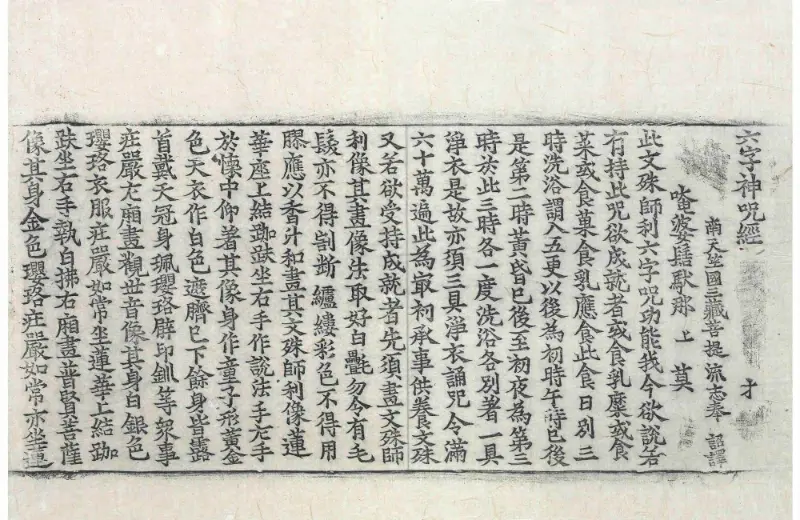 六字神呪經 才
南天竺國三藏菩提流志奉 詔譯
唵婆髻馱那 上 莫
此文殊師利六字呪功能我今欲說若
有持此呪欲成就者或食乳糜或食
菜或食菓食乳應食此食日別三
時洗浴謂入五更以後為初時午時已後
是第二時黃昏已後至初夜為第三
時於此三時各一度洗浴各別著一具
淨衣是故亦須三具淨衣誦呪令滿
六十萬遍此為最初承事供養文殊
又若欲受持成就者先須畫文殊師
利像其畫像法取好白㲲勿令有毛
髮亦不得割斷纑縷彩色不得用
膠應以香汁和畫其文殊師利像蓮
華座上結跏趺坐右手作說法手左手
於懷中仰著其像身作童子形黃金
色天衣作白色遮臍已下餘身皆露
首戴天冠身珮瓔珞臂印釧等眾事
莊嚴左廂畫觀世音像其身白銀色
瓔珞衣服莊嚴如常坐蓮華上結跏
趺坐右手執白拂右廂畫普賢菩薩
像其身金色瓔珞莊嚴如常亦坐蓮